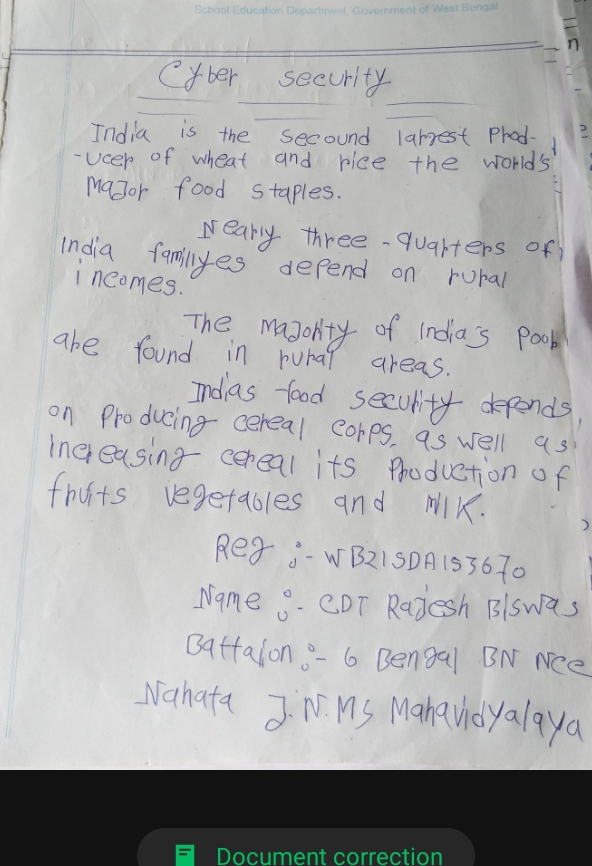 School Education Department, Government of West Bengal
n
Cyber security
India is the secound largest Prod-
-ucer of wheat and rice the world's
Major food staples.
Nearly three-quarters of
India familyes defend on rural
incomes.
The Majority of India's Poor
are found in rural areas.
Indias food security defends
on Producing cereal corps, as well as
increasing cereal its Production of
fruits vegetables and Milk.
Reg :- WB21SDA153670
Name :- CDT Rajesh Biswas
Battalon :- 6 Bengal BN NCC
Nahata J.N.MS Mahavidyalaya
Document correction